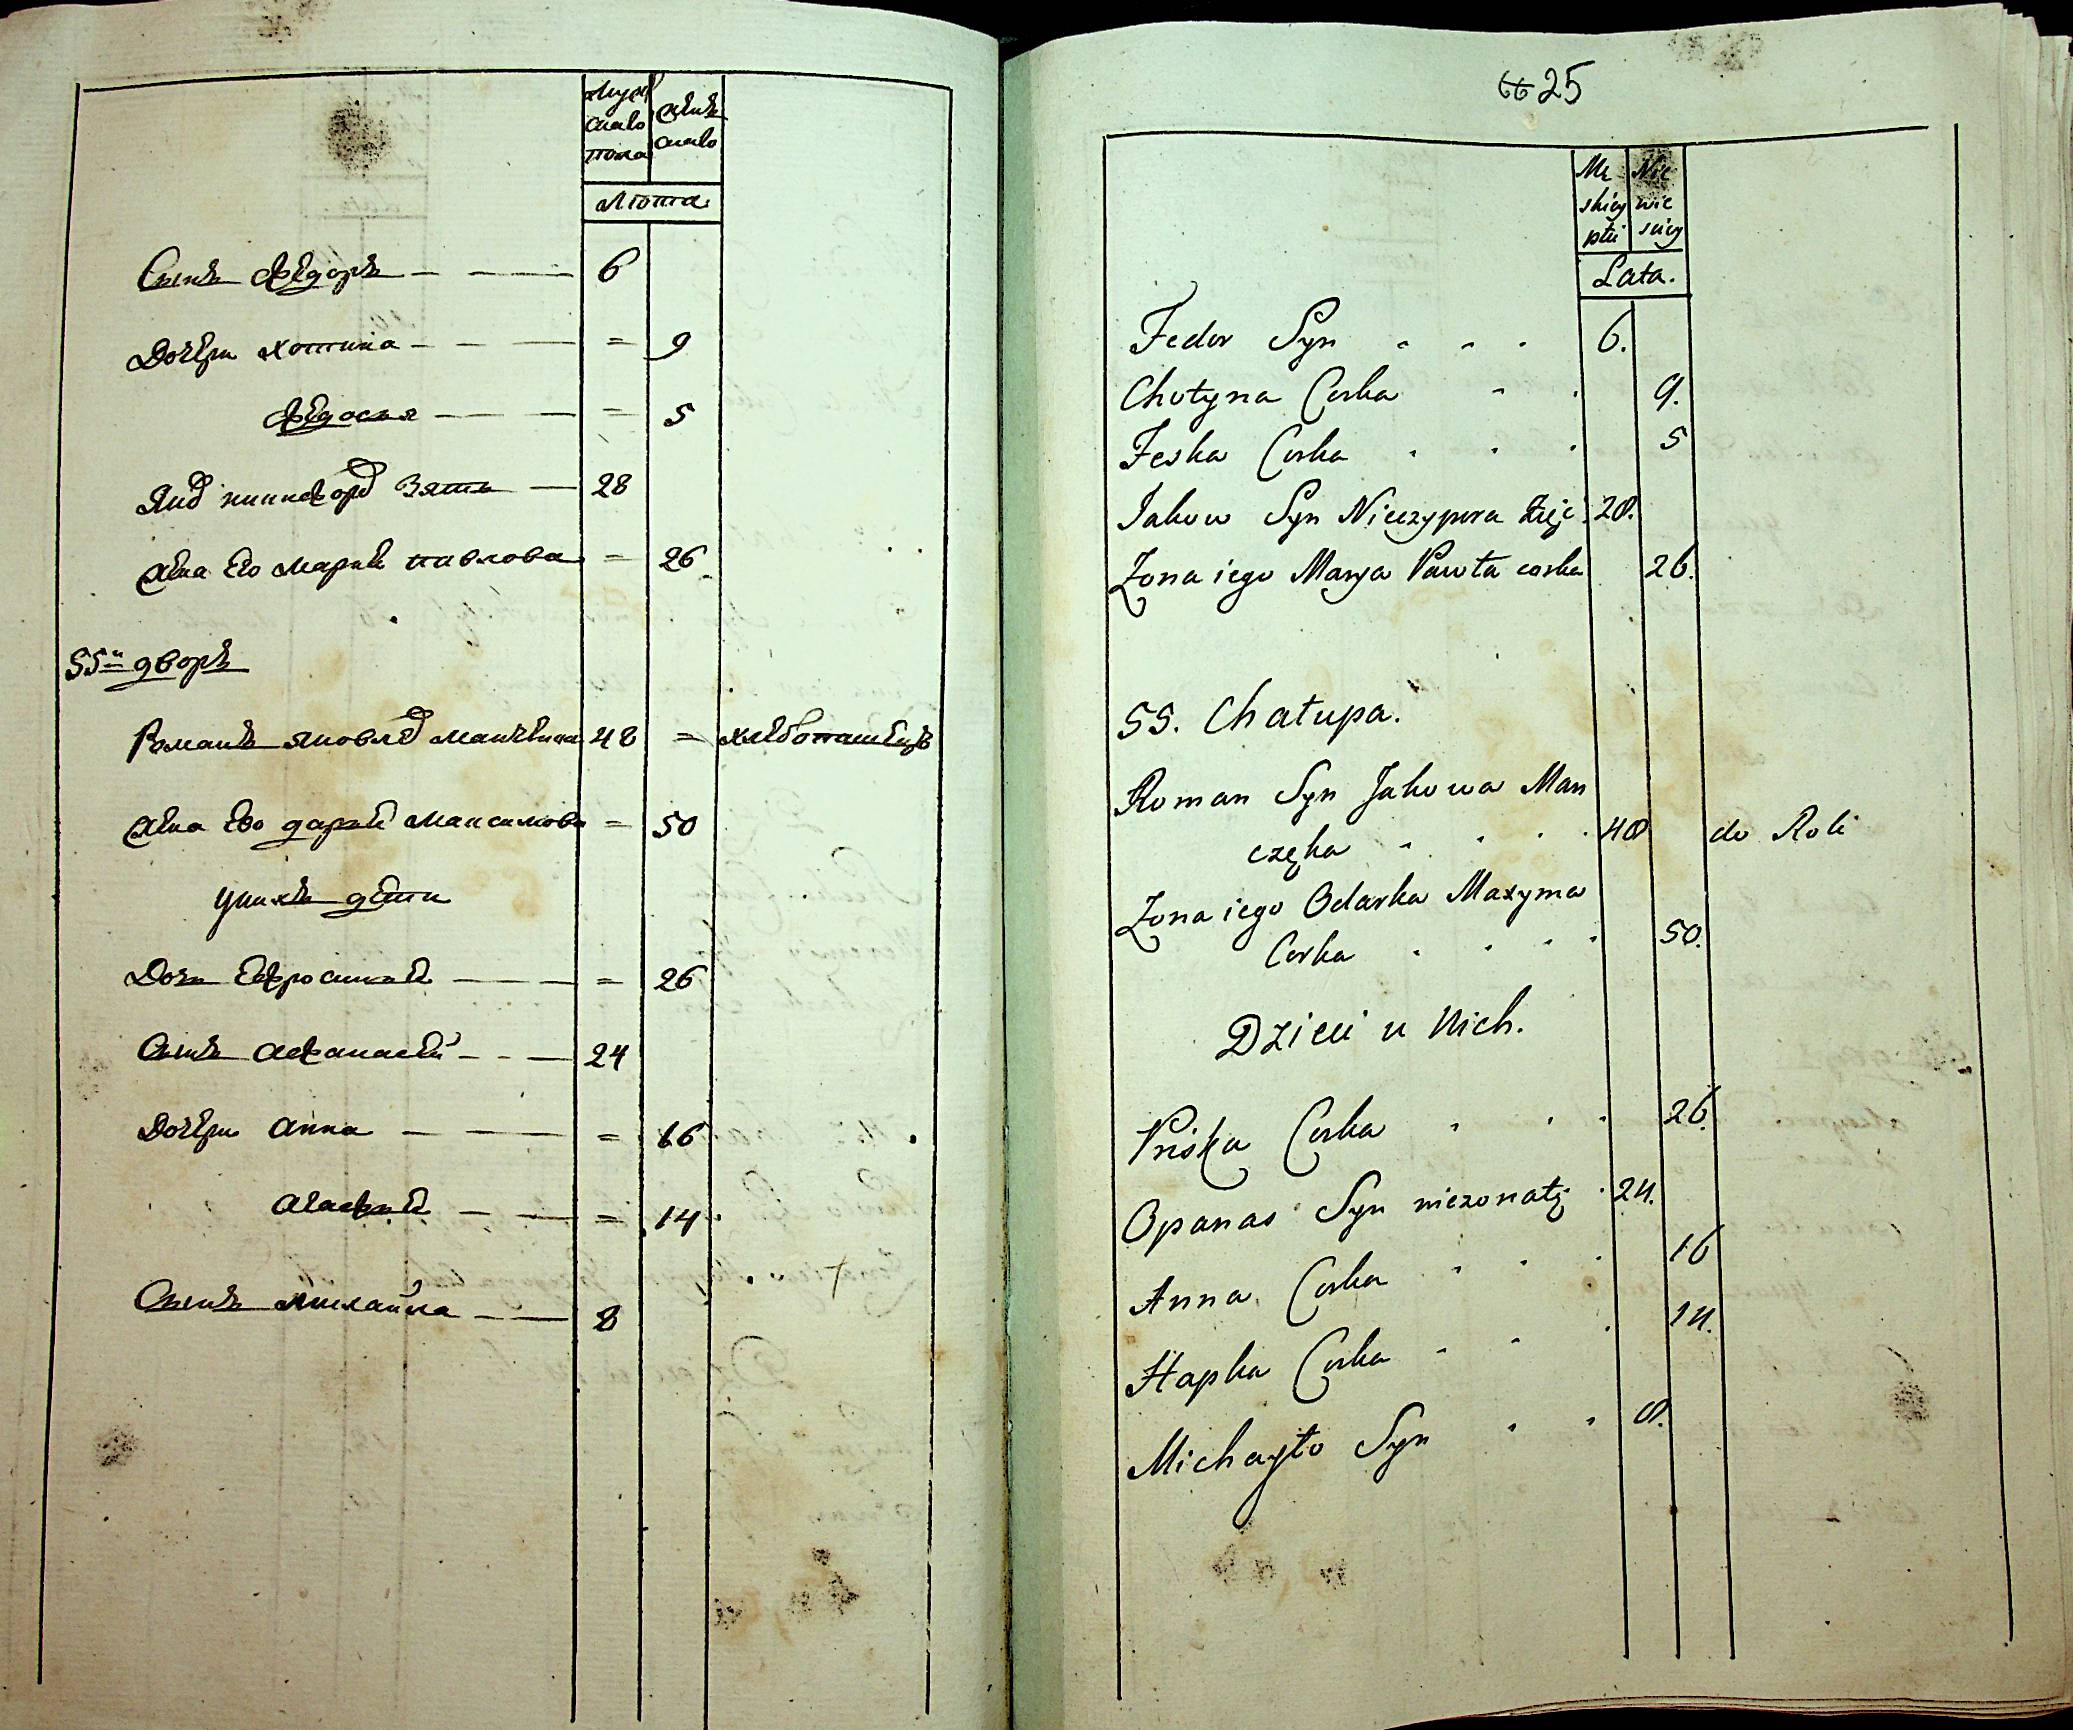 Мужс
скаго
пола
Женс
скаго
Лѣта
Сынъ Ѳедоръ 6
Дочери Хотина = 9
Ѳедосья = 5
Яко Никифор Зять 28
Жена Ево Мария Павлова = 26
55й дворъ
Романъ Яковлев Манченка 48 = хлебопашецъ
Жена Ево Дария Максимова = 50
У нихъ дети
Дочь Ефросиния = 26
Сынъ Афанасей 24
Дочери Анна = 16
Агафия = 14
Сынъ Михайла 8
25
Mę
skiey
płci
Nie
wie
sciey
Lata.
Fedor Syn 6.
Chotyna Corka 9.
Feska Corka 5
Jakow Syn Nieczypora Zięć 28.
Zona iego Marya Pawła corka 26.
55. Chałupa.
Roman Syn Jakowa Man
częka 48 do Roli
Zona iego Odarka Maxyma
Corka 50.
Dzieci u Nich.
Priska Corka 26.
Opanas Syn niezonaty 24.
Anna Corka 16
Hapka Corka 14.
Michayło Syn 8.